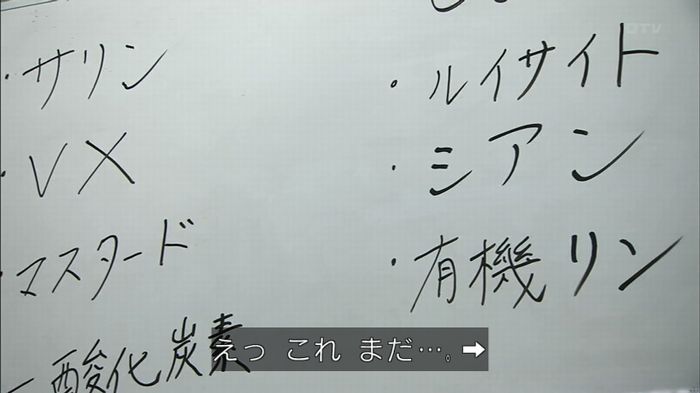 ・サリン
・VX
・マスタード
一酸化炭素
・ルイサイト
・シアン
・有機リン
えっ これ まだ…。➡